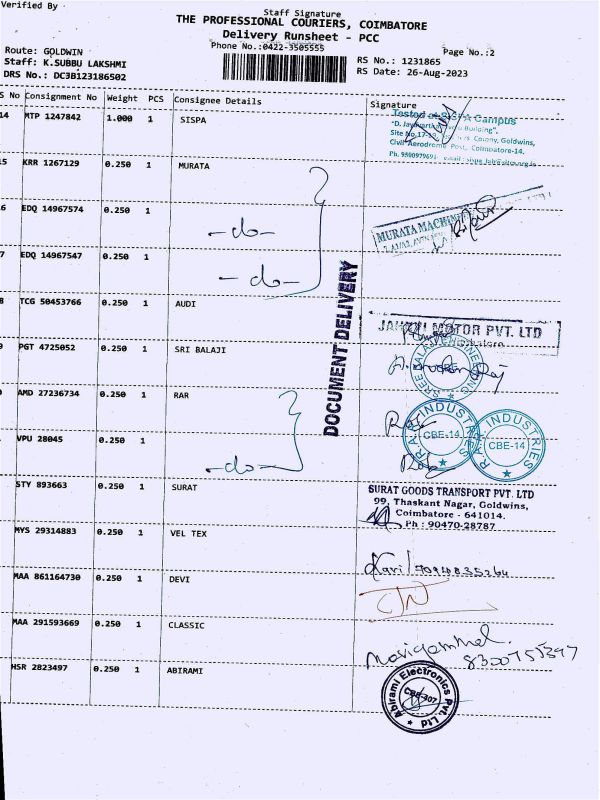 Verified By
Staff Signature
THE PROFESSIONAL COURIERS, COIMBATORE
Delivery Runsheet - PCC
Phone No.:0422-3505555
Page No.:2
Route: GOLDWIN
Staff: K.SUBBU LAKSHMI
DRS No.: DC3B123186502
RS No.: 1231865
RS Date: 26-Aug-2023
S No Consignment No Weight PCS Consignee Details Signature
14 MTP 1247842 1.000 1 SISPA
Campus
Building",
Colony, Goldwins,
Civil Aerodrome Post, Coimbatore-14.
15 KRR 1267129 0.250 1 MURATA
6 EDQ 14967574 0.250 1 -do-
MURATA MACHINERY
7 EDQ 14967547 0.250 1 -do-
DOCUMENT DELIVERY
8 TCG 50453766 0.250 1 AUDI
MOTOR PVT. LTD
9 PGT 4725052 0.250 1 SRI BALAJI
AMD 27236734 0.250 1 RAR
R.A.R INDUSTRIES
CBE-14
R.A.R INDUSTRIES
CBE-14
VPU 28045 0.250 1 -do-
STY 893663 0.250 1 SURAT
SURAT GOODS TRANSPORT PVT. LTD
99, Thaskant Nagar, Goldwins,
Coimbatore - 641014.
Ph : 90470-28787
MYS 29314883 0.250 1 VEL TEX
MAA 861164730 0.250 1 DEVI
MAA 291593669 0.250 1 CLASSIC
8300755397
HSR 2823497 0.250 1 ABIRAMI
Abirami Electronics Pvt. Ltd